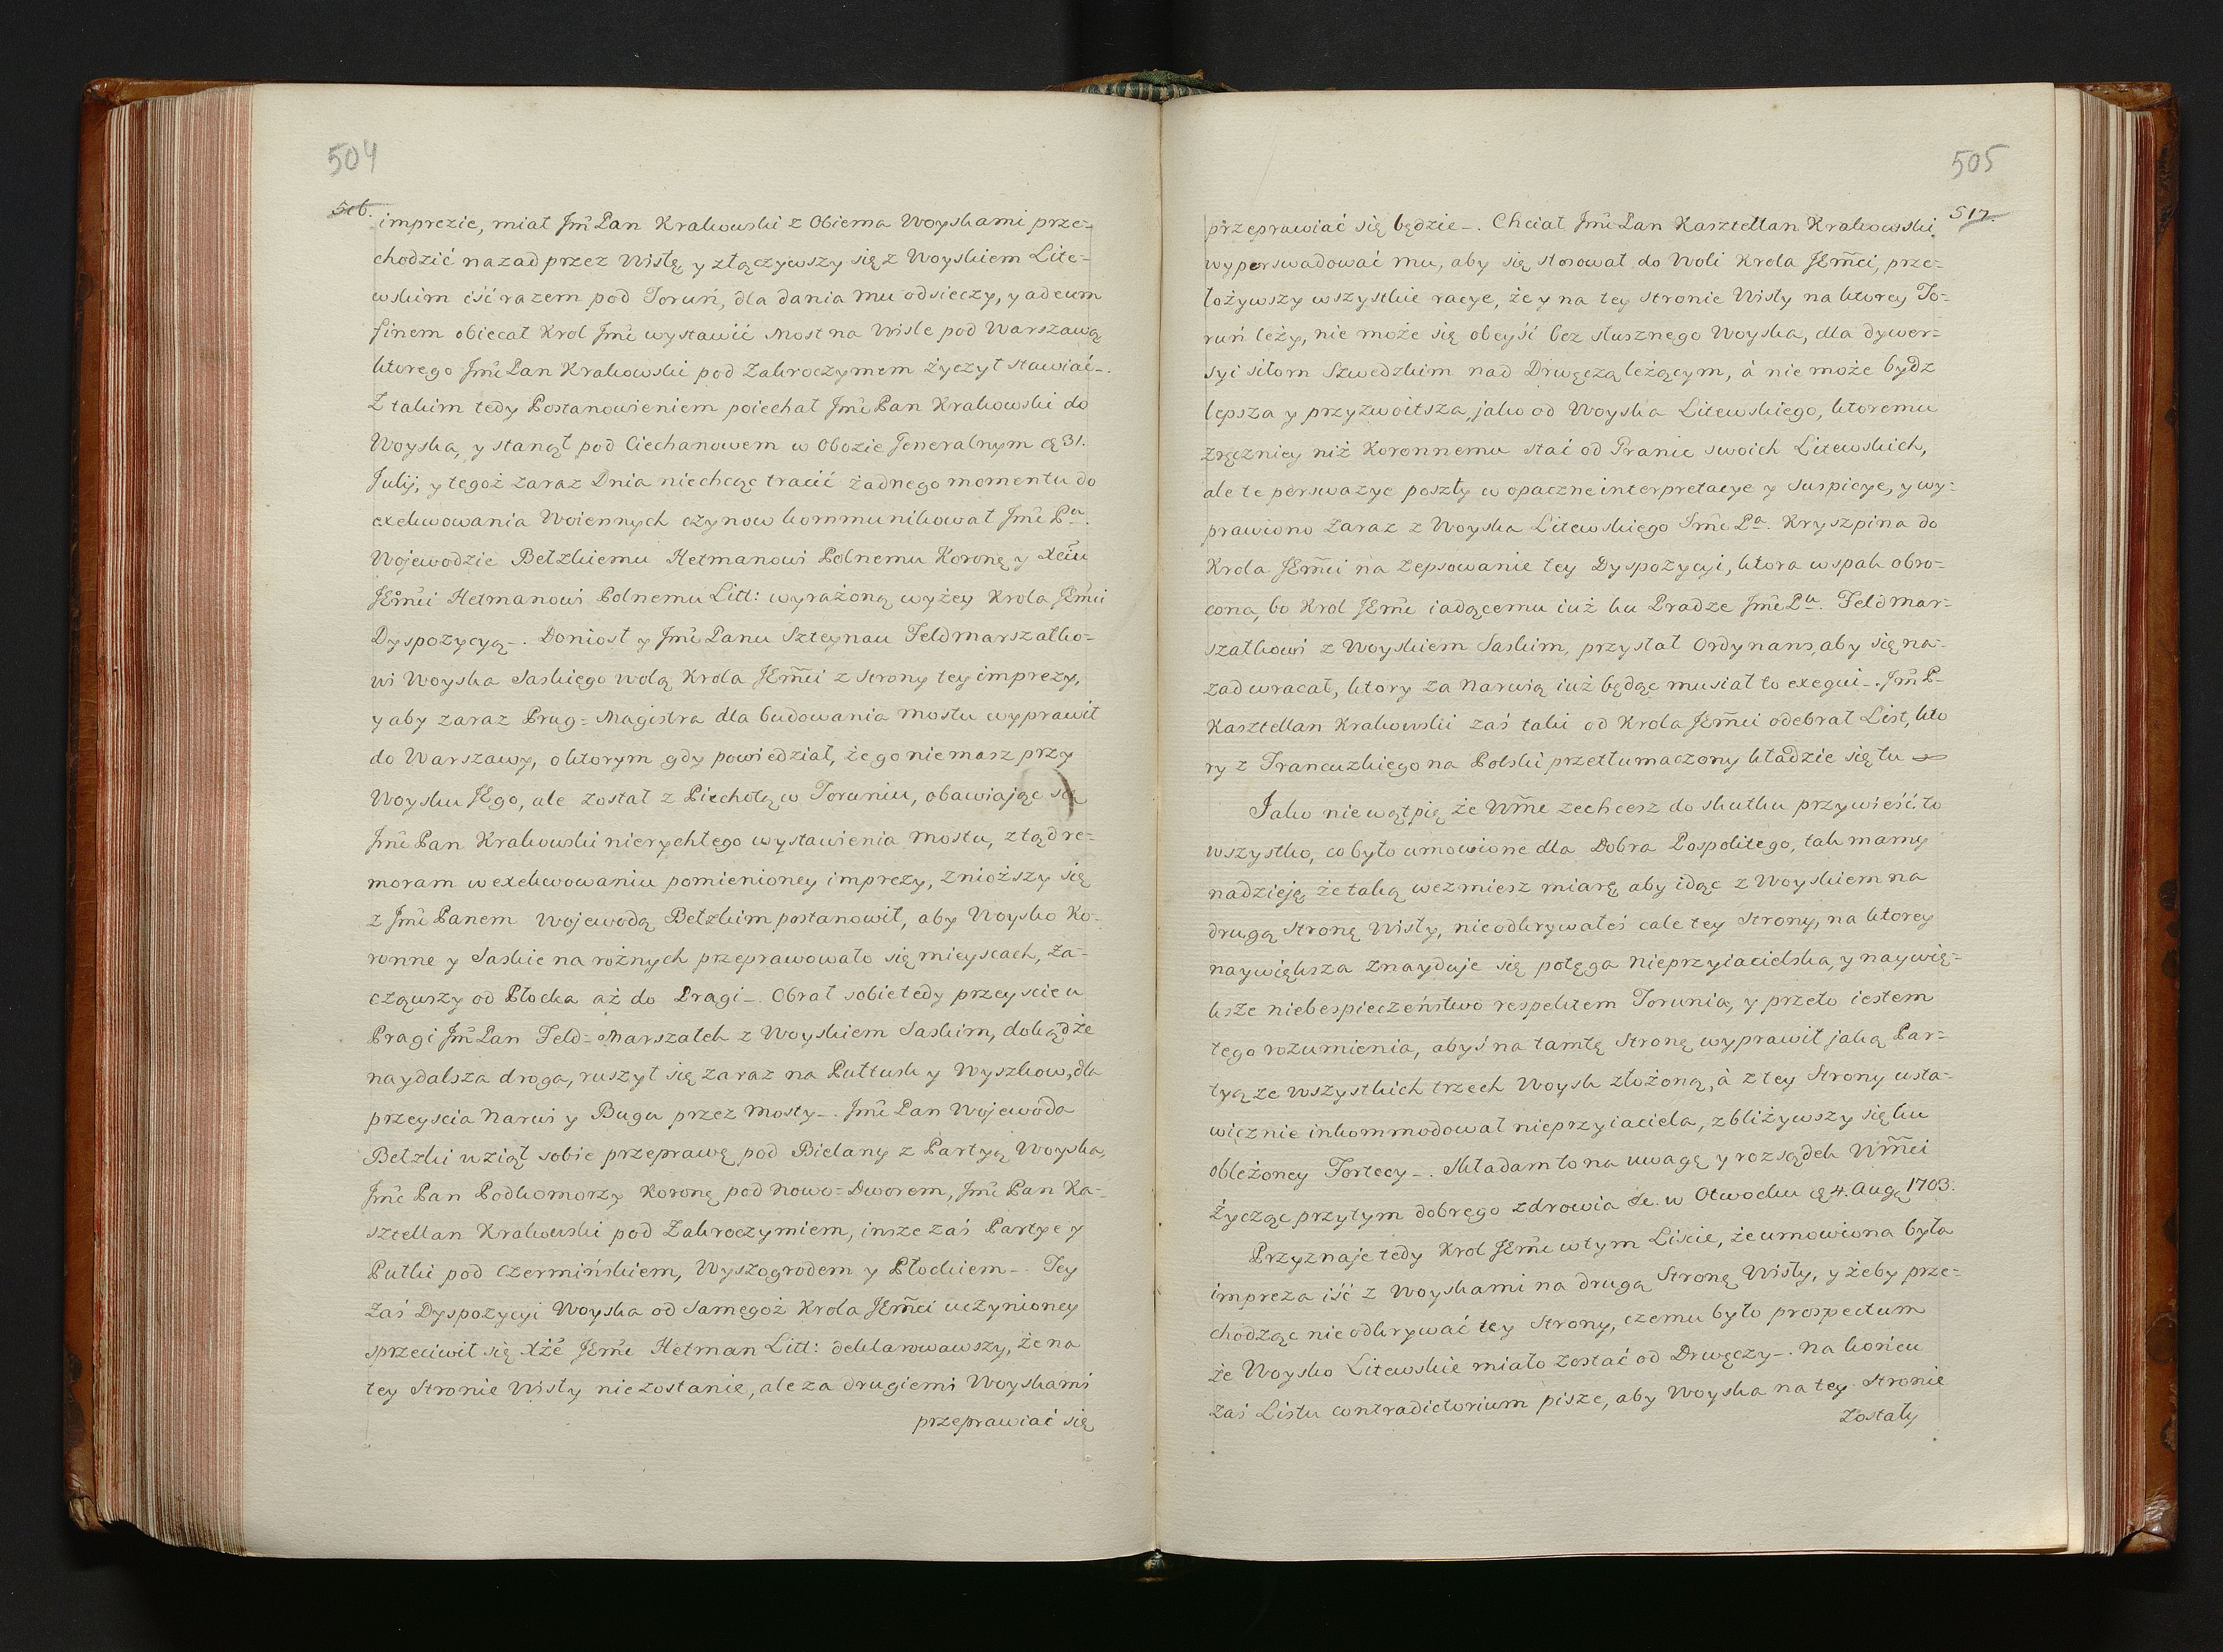 504
516.
imprezie, miał Jmć Pan Krakowski z Obiema Woyskami prze=
chodzić nazad przez Wisłę y złączywszy się z Woyskiem Lite=
wskim iść razem pod Toruń, dla dania mu odsieczy, y ad eum
finem obiecał Krol Jmć wystawić Most na Wisle pod Warszawą
ktorego Jmć Pan Krakowski pod Zakroczymem życzył stawiać_.
Z takim tedy Postanowieniem poiechał Jmć Pan Krakowski do
Woyska, y stanął pod Ciechanowem w Obozie Generalnym 31.
Julij, y tegoż zaraz Dnia niechcąc tracić żadnego momentu do
exekwowania Woiennych czynow kommunikował Jmć Pu.
Wojewodzie Bełzkiemu Hetmanowi Polnemu Koronę y Xciu
JEmći Hetmanowi Polnemu Litt: wyrażoną wyżey Krola JEmći
Dyspozycyą_. Doniosł y Jmć Panu Szteynau Feldmarszałko=
wi Woyska Saskiego wolą Krola JEmći z strony tey imprezy,
y aby zaraz Brug= Magistra dla budowania mostu wyprawił
do Warszawy, o ktorym gdy powiedział, że go niemasz przy
Woysku JEgo, ale został z Piechotą w Toruniu, obawiając się
Jmć Pan Krakowski nierychłego wystawienia mostu, z tąd re=
moram w exekwowaniu pomienioney imprezy, zniozszy się
z Jmć Panem Wojewodą Bełzkim postanowił, aby Woysko Ko=
ronne y Saskie na rożnych przeprawowało się mieyscach, za=
cząwszy od Płocka aż do Pragi_. Obrał sobie tedy przeyscie u
Pragi Jmć Pan Feld= Marszałek z Woyskiem Saskim, dokąd że
naydalsza droga, ruszył się zaraz na Pułtusk y Wyszkow, dla
przeyscia Narwi y Bugu przez Mosty_. Jmć Pan Wojewoda
Bełzki wziął sobie przeprawę pod Bielany z Partyą Woyska,
Jmć Pan Podkomorzy Koronę pod Nowo=Dworem, Jmć Pan Ka=
sztellan Krakowski pod Zakroczymiem, insze zaś Partye y
Pułki pod Czermińskiem, Wyszogrodem y Płockiem_. Tey
zaś Dyspozycyi Woyska od samegoż Krola JEmći uczynioney
sprzeciwił się Xże JEmć Hetman Litt: deklarowawszy, że na
tey stronie Wisły nie zostanie, ale za drugiemi Woyskami
przeprawiać się
505
517.
przeprawiać się będzie_. Chciał Jmć Pan Kasztellan Krakowski
wyperswadować mu, aby się stosował do Woli Krola JEmći, prze=
łożywszy wszystkie racye, że y na tey stronie Wisły na ktorey To=
ruń leży, nie może się obeyść bez słusznego Woyska, dla dywer=
syi siłom Szwedzkim nad Drwęczą leżącym, à nie może bydz
lepsza y przyzwoitsza, jako od Woyska Litewskiego, ktoremu
zręczniey niż Koronnemu stać od Granic swoich Litewskich,
ale te perswazye poszły w opaczne interpretacye y suspicye, y wy=
prawiono zaraz z Woyska Litewskiego Jmć Pa. Kryszpina do
Krola JEmći na zepsowanie tey Dyspozycyi, ktora wspak obro=
cona, bo Krol JEmć iadącemu iuż ku Pradze Jmć Pu. Feldmar=
szałkowi z Woyskiem Saskim, przysłał Ordynans, aby się na=
zad wracał, ktory za Narwią iuż będąc musiał to exequi_. Jmć P.
Kasztellan Krakowski zaś taki od Krola JEmći odebrał List, kto
ry z Francuzkiego na Polski przetłumaczony kładzie się tu
Jako niewątpię że Wmć zechcesz do skutku przywieść to
wszystko, co było umowione dla Dobra Pospolitego, tak mamy
nadzieję że taką wezmiesz miarę aby idąc z Woyskiem na
drugą stronę Wisły, nieodkrywałeś cale tey Strony, na ktorey
naywiększa znayduje się potęga nieprzyiacielska, y naywię=
ksze niebespieczeństwo respektem Torunia, y przeto iestem
tego rozumienia, abyś na tamtę stronę wyprawił jaką Par=
tyą ze wszystkich trzech Woysk złożoną, à z tey Strony usta=
wicznie inkommodował nieprzyiaciela, zbliżywszy się ku
obleżoney Fortecy_. Składam to na uwagę y rozsądek Wmći
życząc przytym dobrego zdrowia &c. w Otwocku 4. Aug 1703.
Przyznaje tedy Krol JEmć w tym Liscie, że umowiona była
impreza iść z Woyskami na drugą Stronę Wisły, y żeby prze=
chodząc nie odkrywać tey Strony, czemu było prospectum
że Woysko Litewskie miało zostać od Drwęczy_. Na końcu
zaś Listu contradictorium pisze, aby Woyska na tey Stronie
zostały